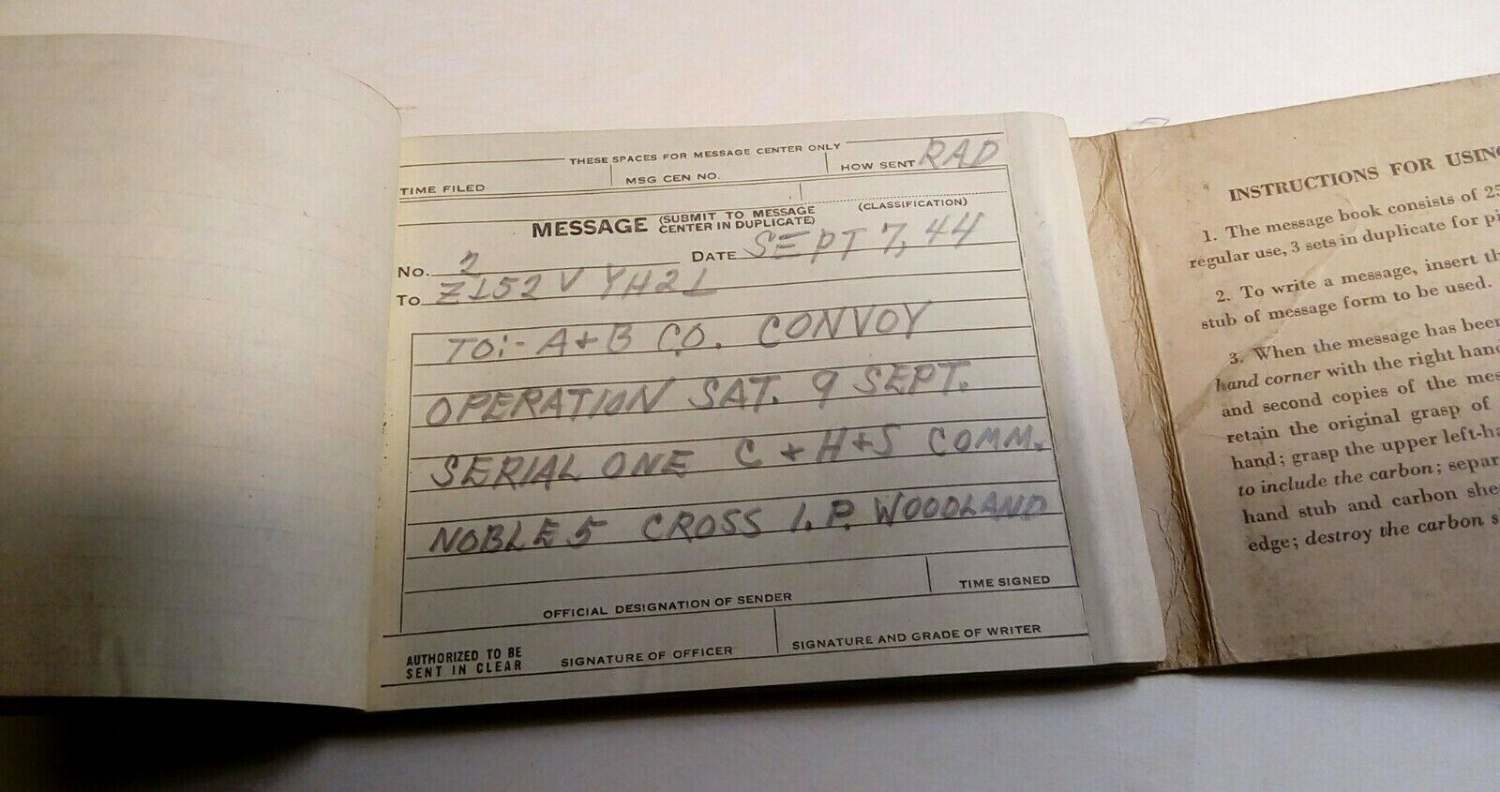 THESE SPACES FOR MESSAGE CENTER ONLY
TIME FILED MSG CEN NO. HOW SENT RAD
MESSAGE (SUBMIT TO MESSAGE CENTER IN DUPLICATE) (CLASSIFICATION)
No. 2 DATE SEPT 7, 44
To Z152 V YH21
TO:- A+B CO. CONVOY
OPERATION SAT. 9 SEPT.
SERIAL ONE C + H+S COMM.
NOBLE 5 CROSS I.P. WOODLAND
OFFICIAL DESIGNATION OF SENDER TIME SIGNED
AUTHORIZED TO BE SENT IN CLEAR SIGNATURE OF OFFICER SIGNATURE AND GRADE OF WRITER
INSTRUCTIONS FOR USING
1. The message book consists of 25
regular use, 3 sets in duplicate for
2. To write a message, insert
stub of message form to be used.
3. When the message has been
hand corner with the right hand
and second copies of the
retain the original grasp of
hand; grasp the upper
to include the carbon;
hand stub and carbon
edge; destroy the carbon